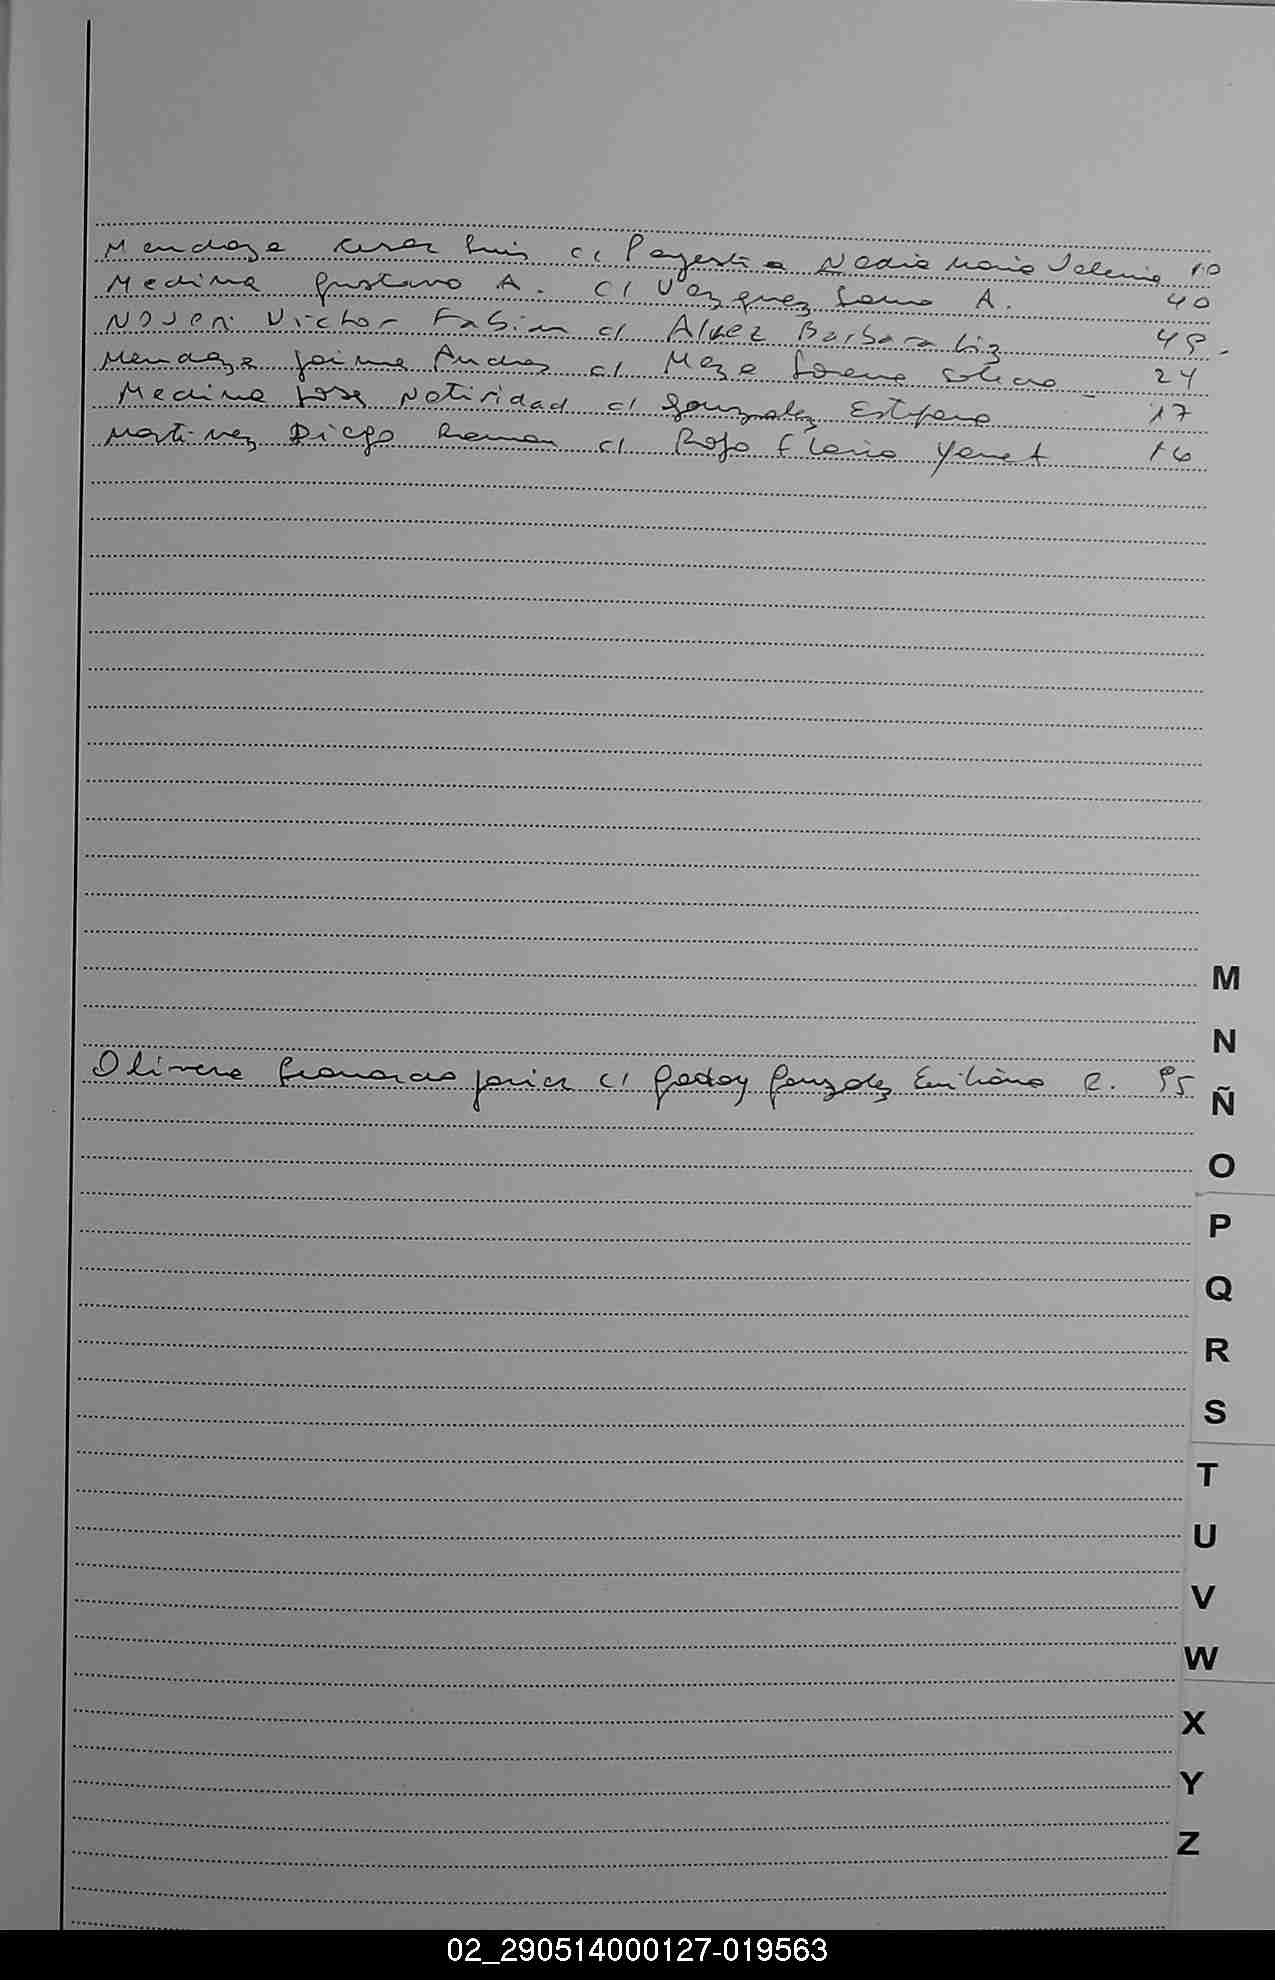 Mendoza Cesar Luis c/ Nadia Maria 10
Medina Gustavo A. c/ Vazquez A. 40
Victor Fabian c/ Alvez Barbara Liz 49.
Mendoza Jaime Andres c/ Meza Lorena 24
Medina Jose Natividad c/ Gonzalez Estefana 17
Martinez Diego Ramon c/ Rojo Flavia Yanet 16
M
N
Olivera Javier c/ Godoy Gonzalez Emiliano R. 95
Ñ
O
P
Q
R
S
T
U
V
W
X
Y
Z
02_290514000127-019563